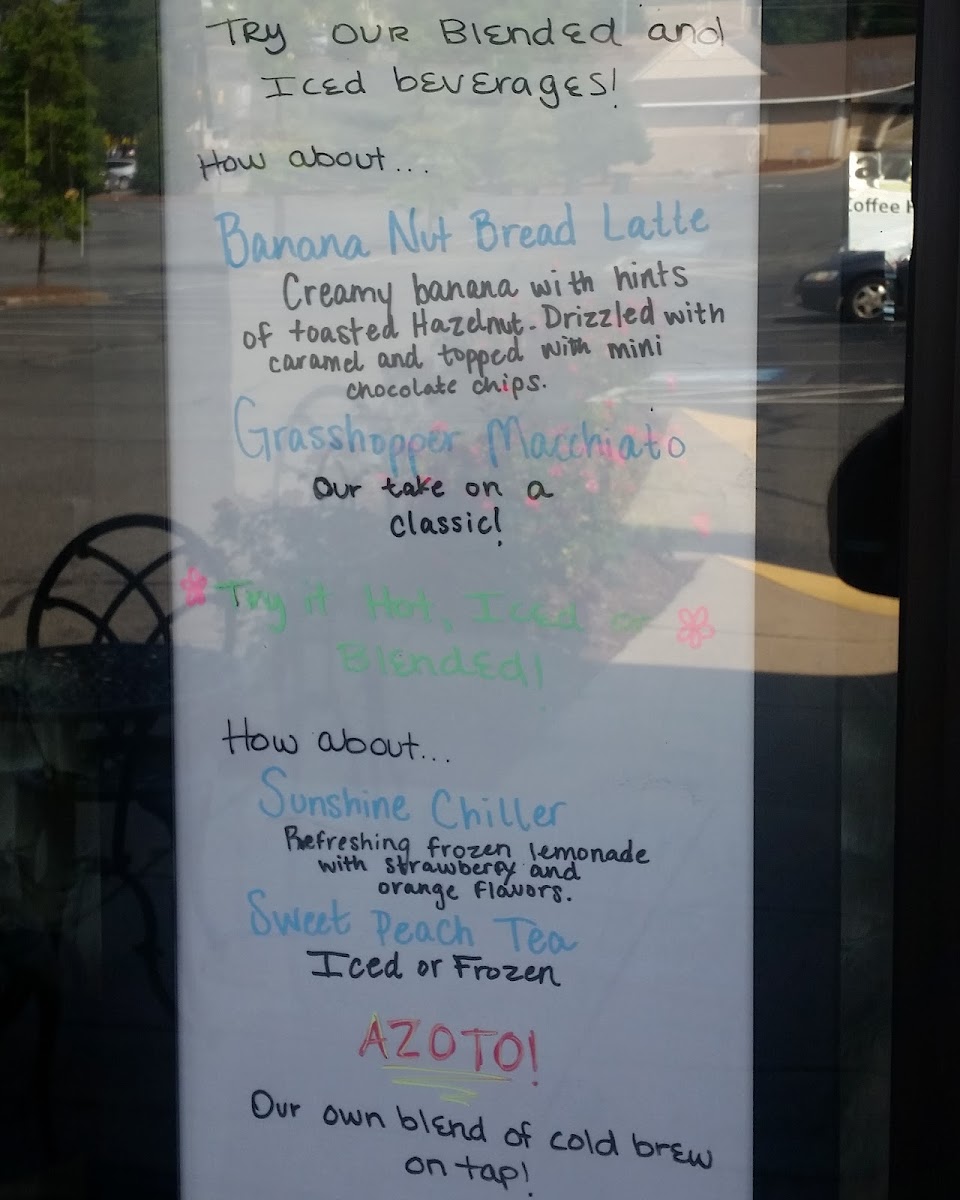 Try our Blended and
Iced beverages!
How about...
Banana Nut Bread Latte
Creamy banana with hints
of toasted Hazelnut. Drizzled with
caramel and topped with mini
chocolate chips.
Grasshopper Macchiato
Our take on a
classic!
Try it Hot, Iced or
Blended!
How about...
Sunshine Chiller
Refreshing frozen lemonade
with strawberry and
orange flavors.
Sweet Peach Tea
Iced or Frozen
AZOTO!
Our own blend of cold brew
on tap!
Coffee